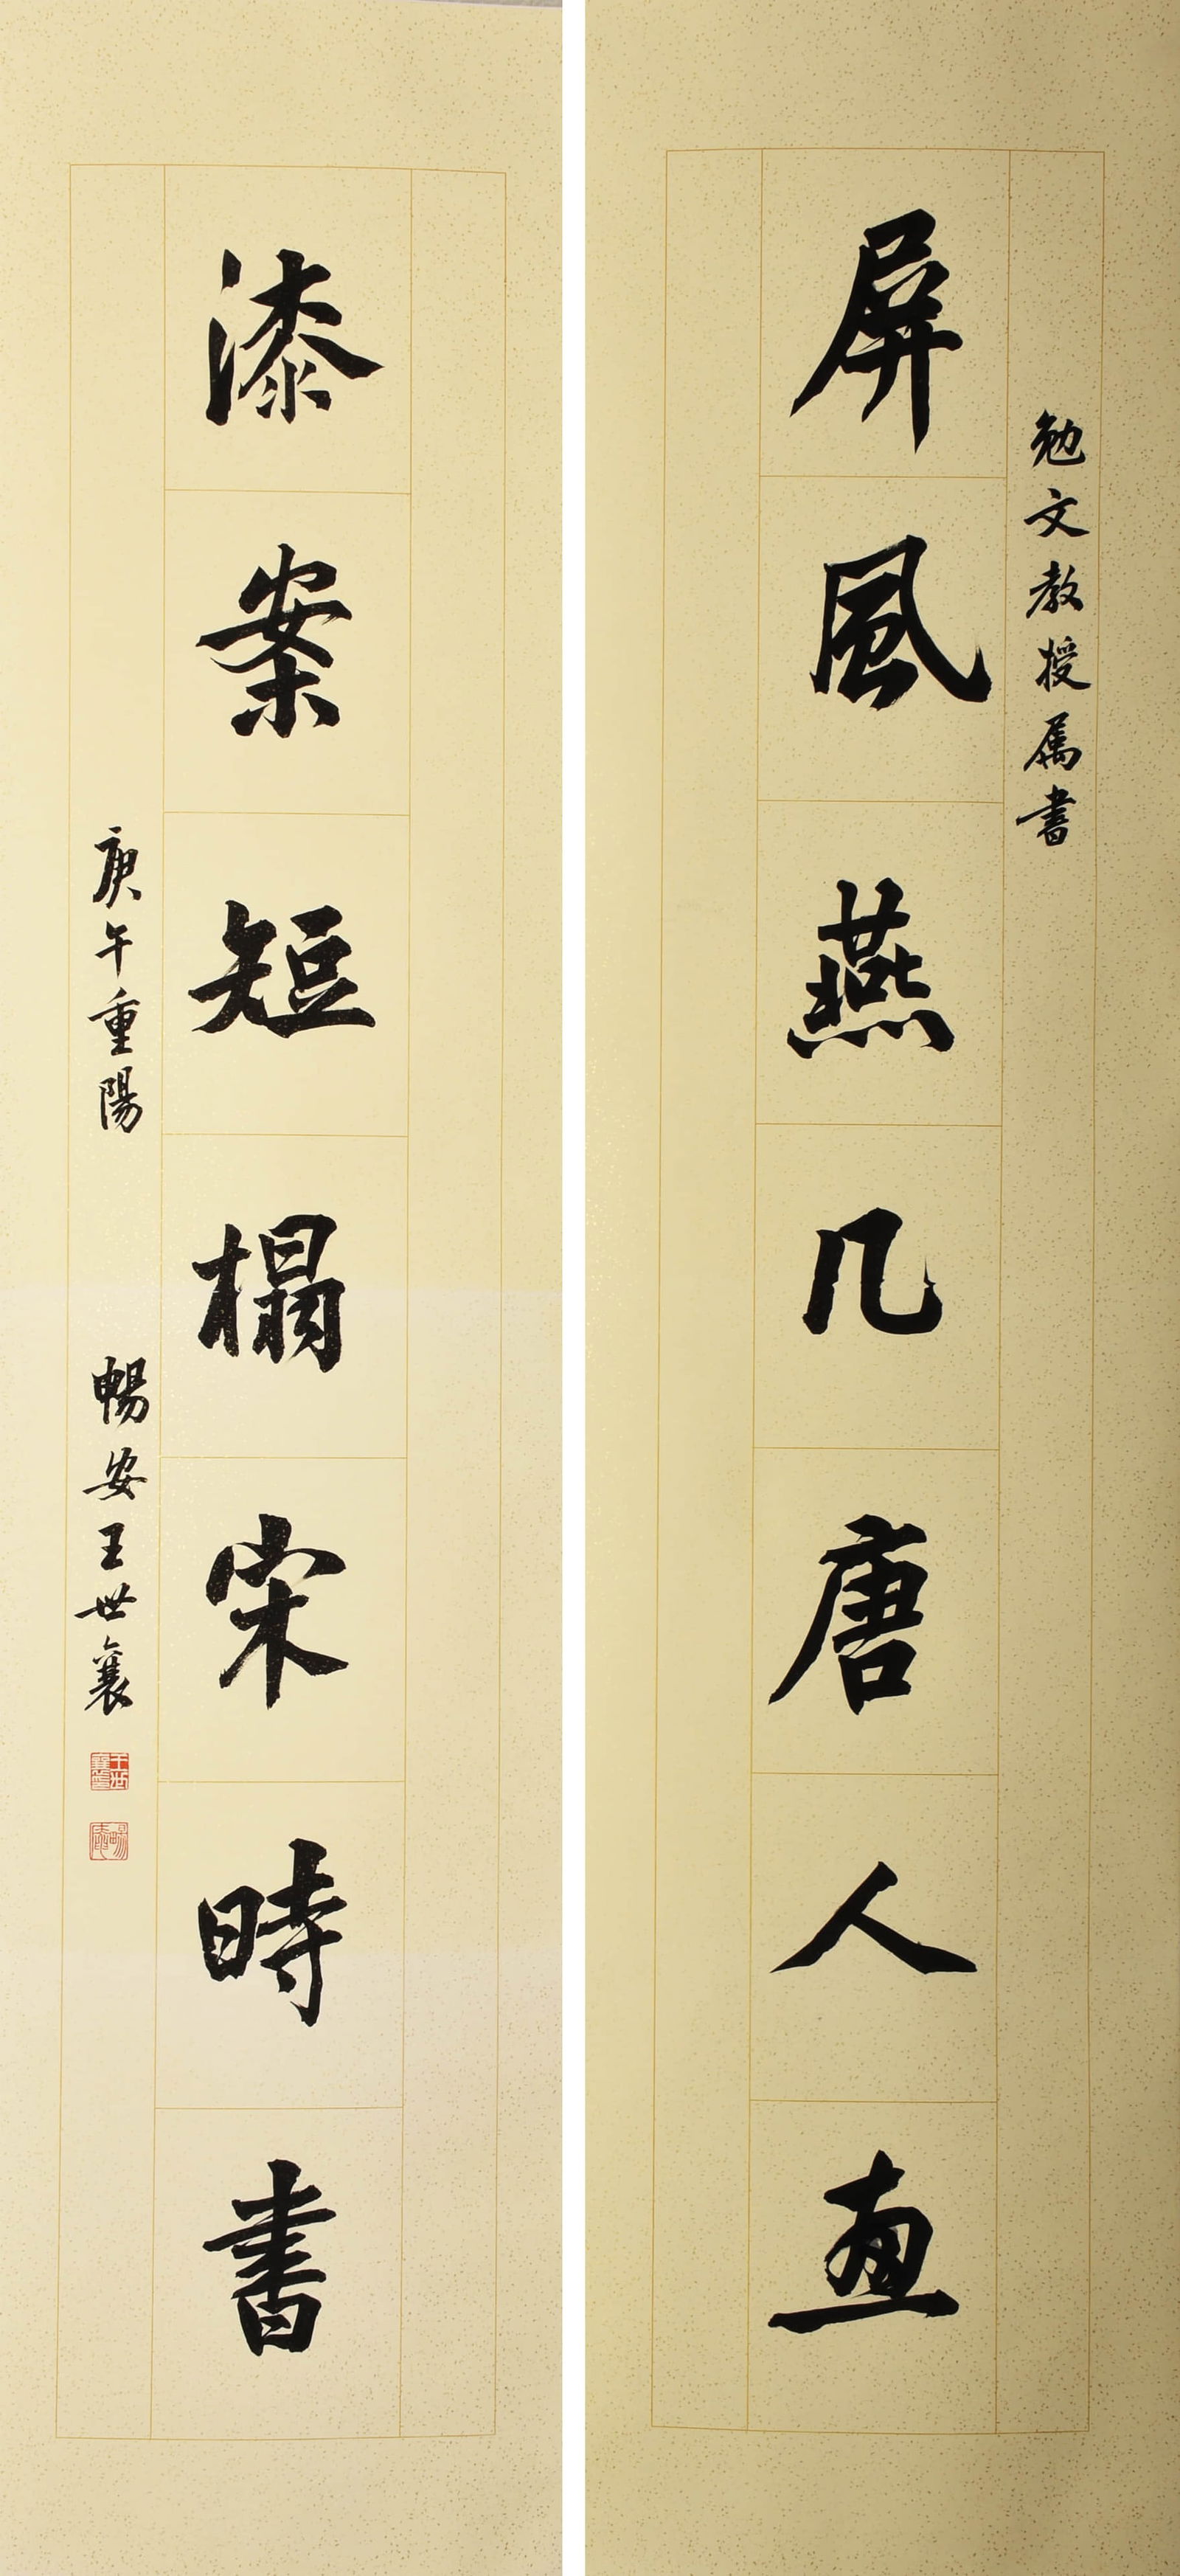 勉文教授属書
屏風燕几唐人畫
漆案短榻宋時書
庚午重陽
暢安王世襄
王世襄璽
暢安